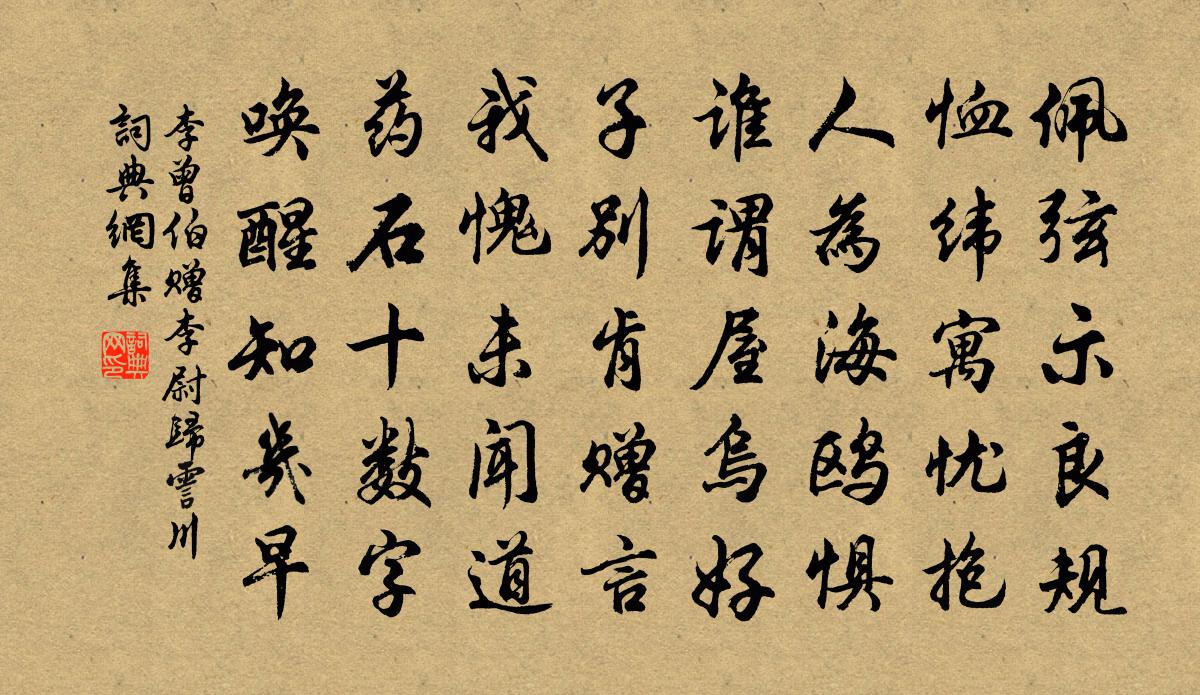 佩弦示良规
恤纬寓忧抱
人為海鸥惧
谁谓屋烏好
子别肯赠言
我愧未闻道
药石十数字
唤醒知幾早
李曾伯赠李尉歸霅川
詞典網集
詞典网印